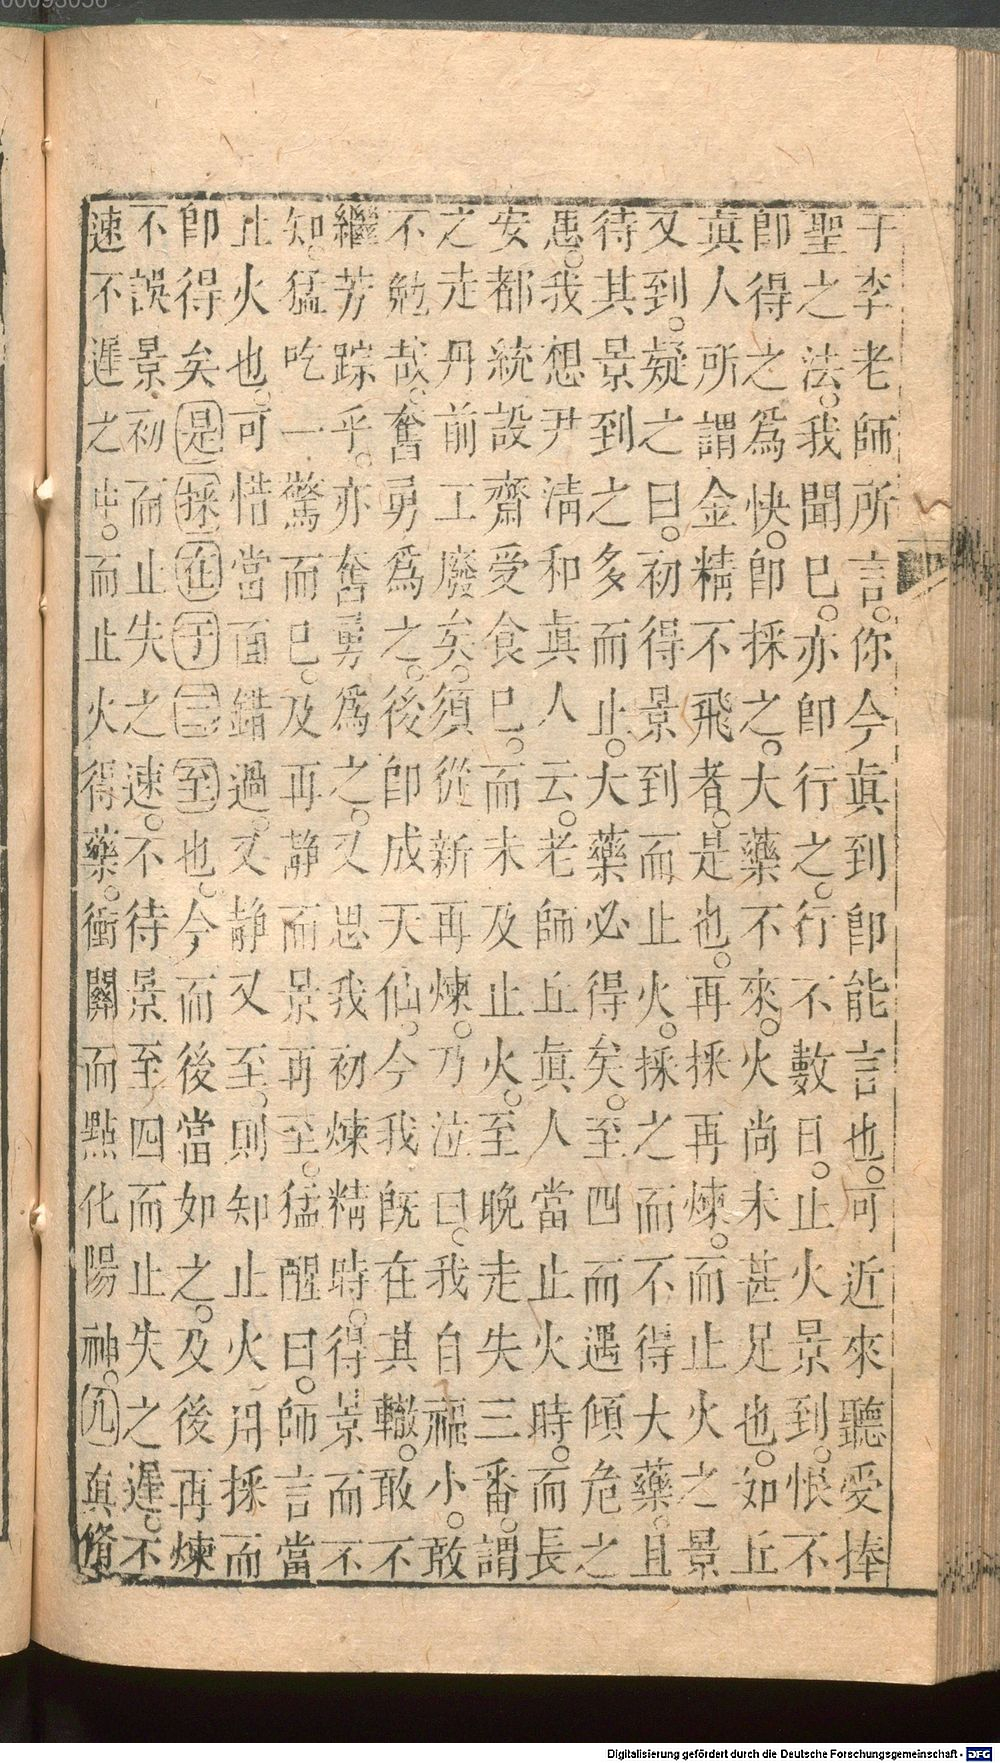 00093056
于李老師所言。你今真到卽能言也。可近來聽受捧
聖之法。我聞已。亦卽行之。行不數日。止火景到。恨不
卽得之爲快。卽採之。大藥不來。火尚未甚足也。如丘
真人所謂金精不飛者。是也。再採再煉。而止火之景
又到。疑之曰。初得景到而止火。採之而不得大藥。且
待其景到之多而止。大藥必得矣。至四而遇傾危之
患。我想尹淸和真人云。老師丘真人當止火時。而長
安都統設齋受食已。而未及止火。至晚走失三番。謂
之走丹。前工廢矣。須從新再煉。乃泣曰。我自福小。敢
不勉哉。奮勇爲之。後卽成天仙。今我旣在其轍。敢不
繼芳踪乎。亦奮勇爲之。又思我初煉精時。得景而不
知。猛吃一驚而已。及再靜而景再至。猛醒曰。師言當
止火也。可惜當面錯過。又靜又至。則知止火用採而
卽得矣。是採在于三至也。今而後當如之。及後再煉
不誤景。初而止失之速。不待景至四而止失之遲。不
速不遲之中。而止火得藥。衝關而點化陽神。凡真脩
Digitalisierung gefördert durch die Deutsche Forschungsgemeinschaft - DFG